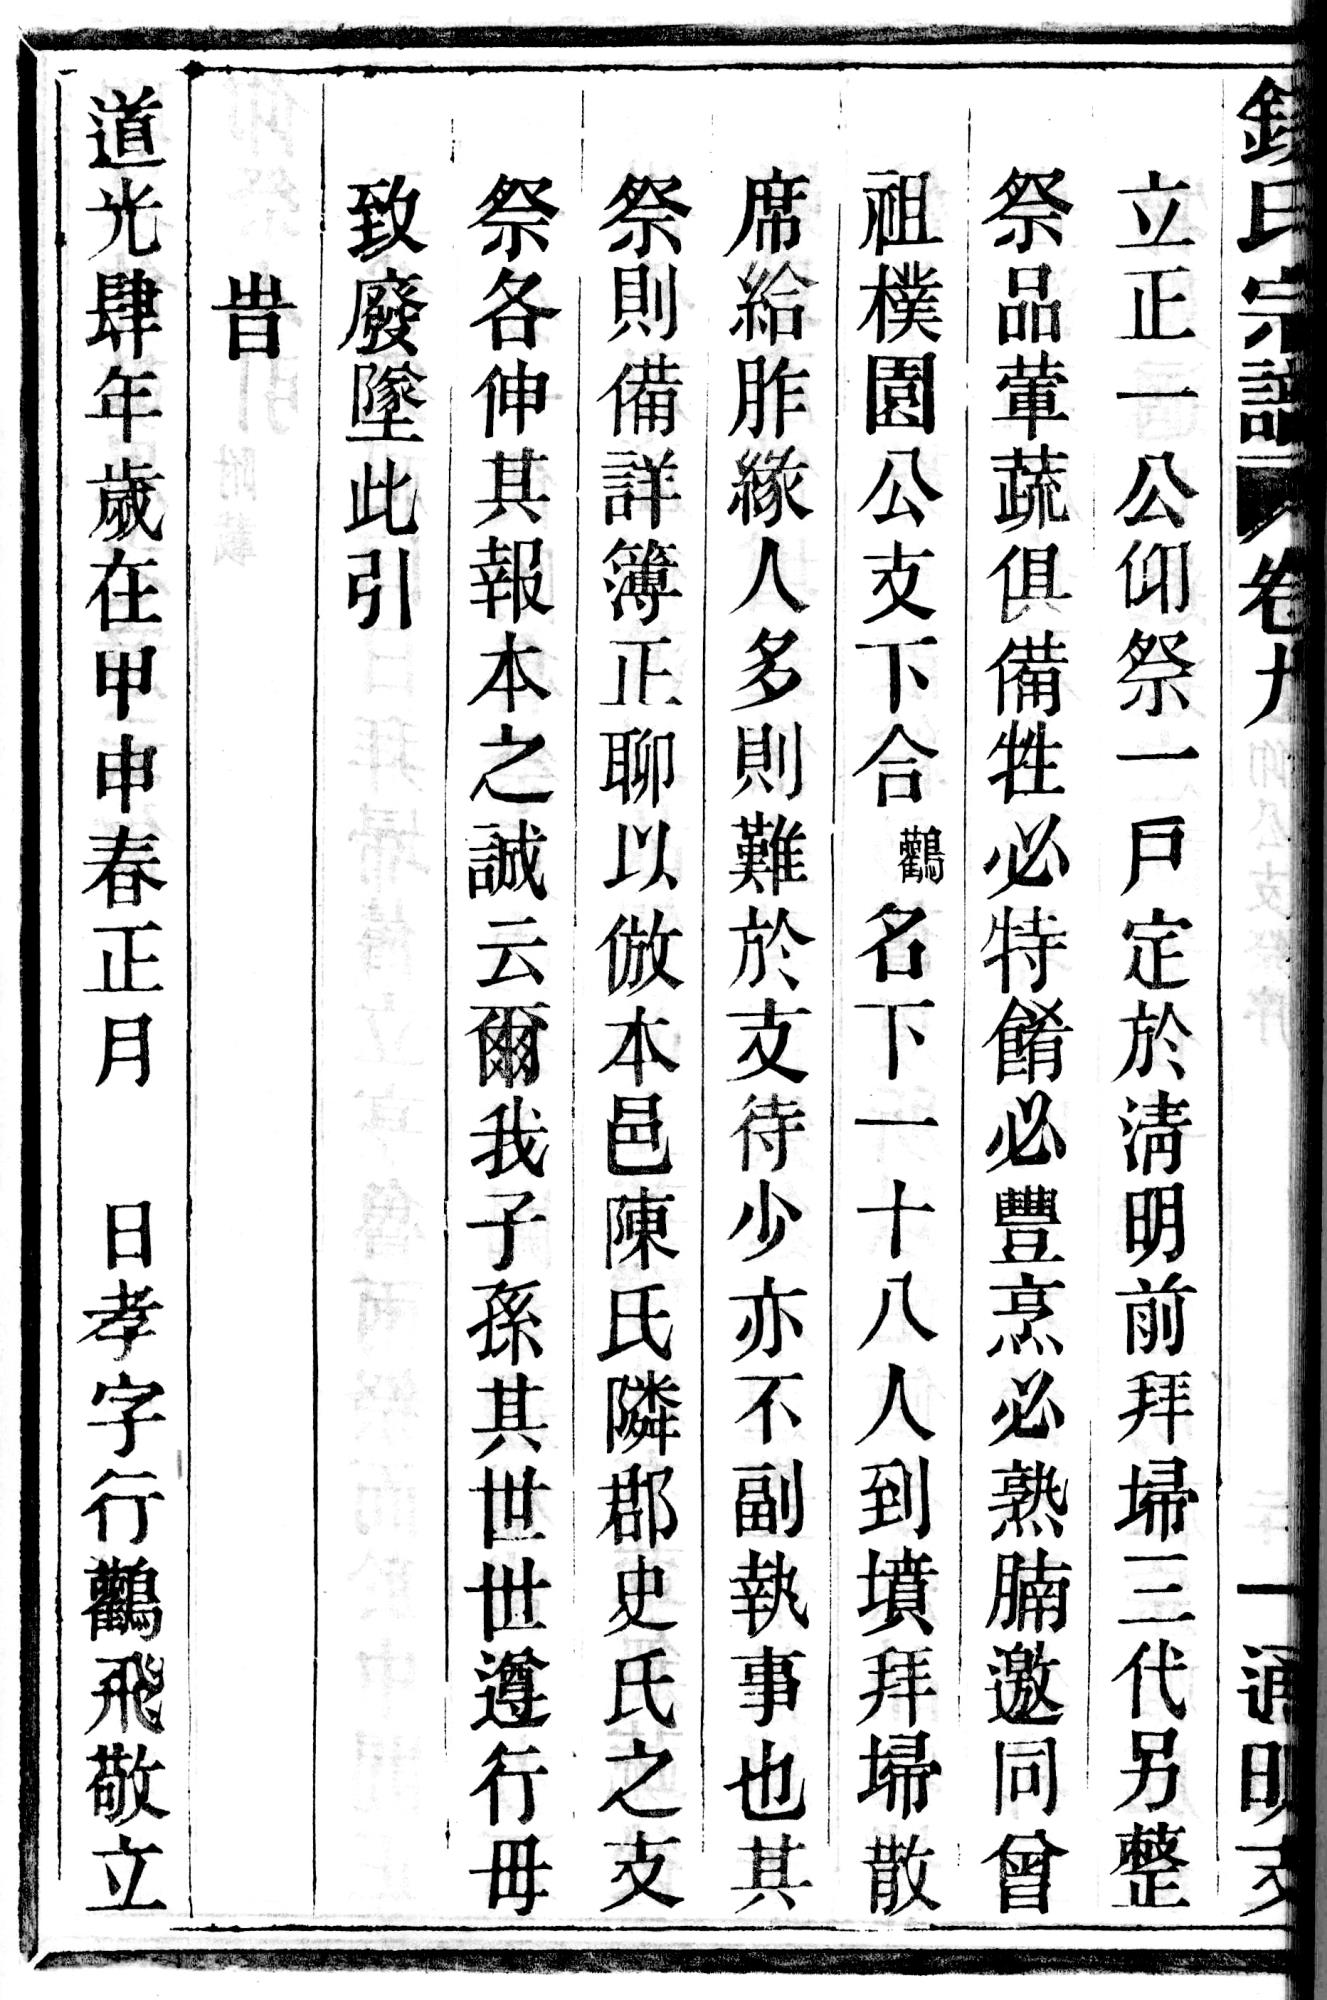 氏宗譜 卷九 一 通明支
立正一公仰祭一戸定於淸明前拜埽三代另整
祭品葷蔬俱備牲必特餚必豐烹必熟腩邀同曾
祖樸園公支下合鸛名下一十八人到墳拜埽散
席給胙緣人多則難於支待少亦不副執事也其
祭則備詳簿正聊以倣本邑陳氏隣郡史氏之支
祭各伸其報本之誠云爾我子孫其世世遵行毋
致廢墜此引
旹
道光肆年歲在甲申春正月 日孝字行鸛飛敬立